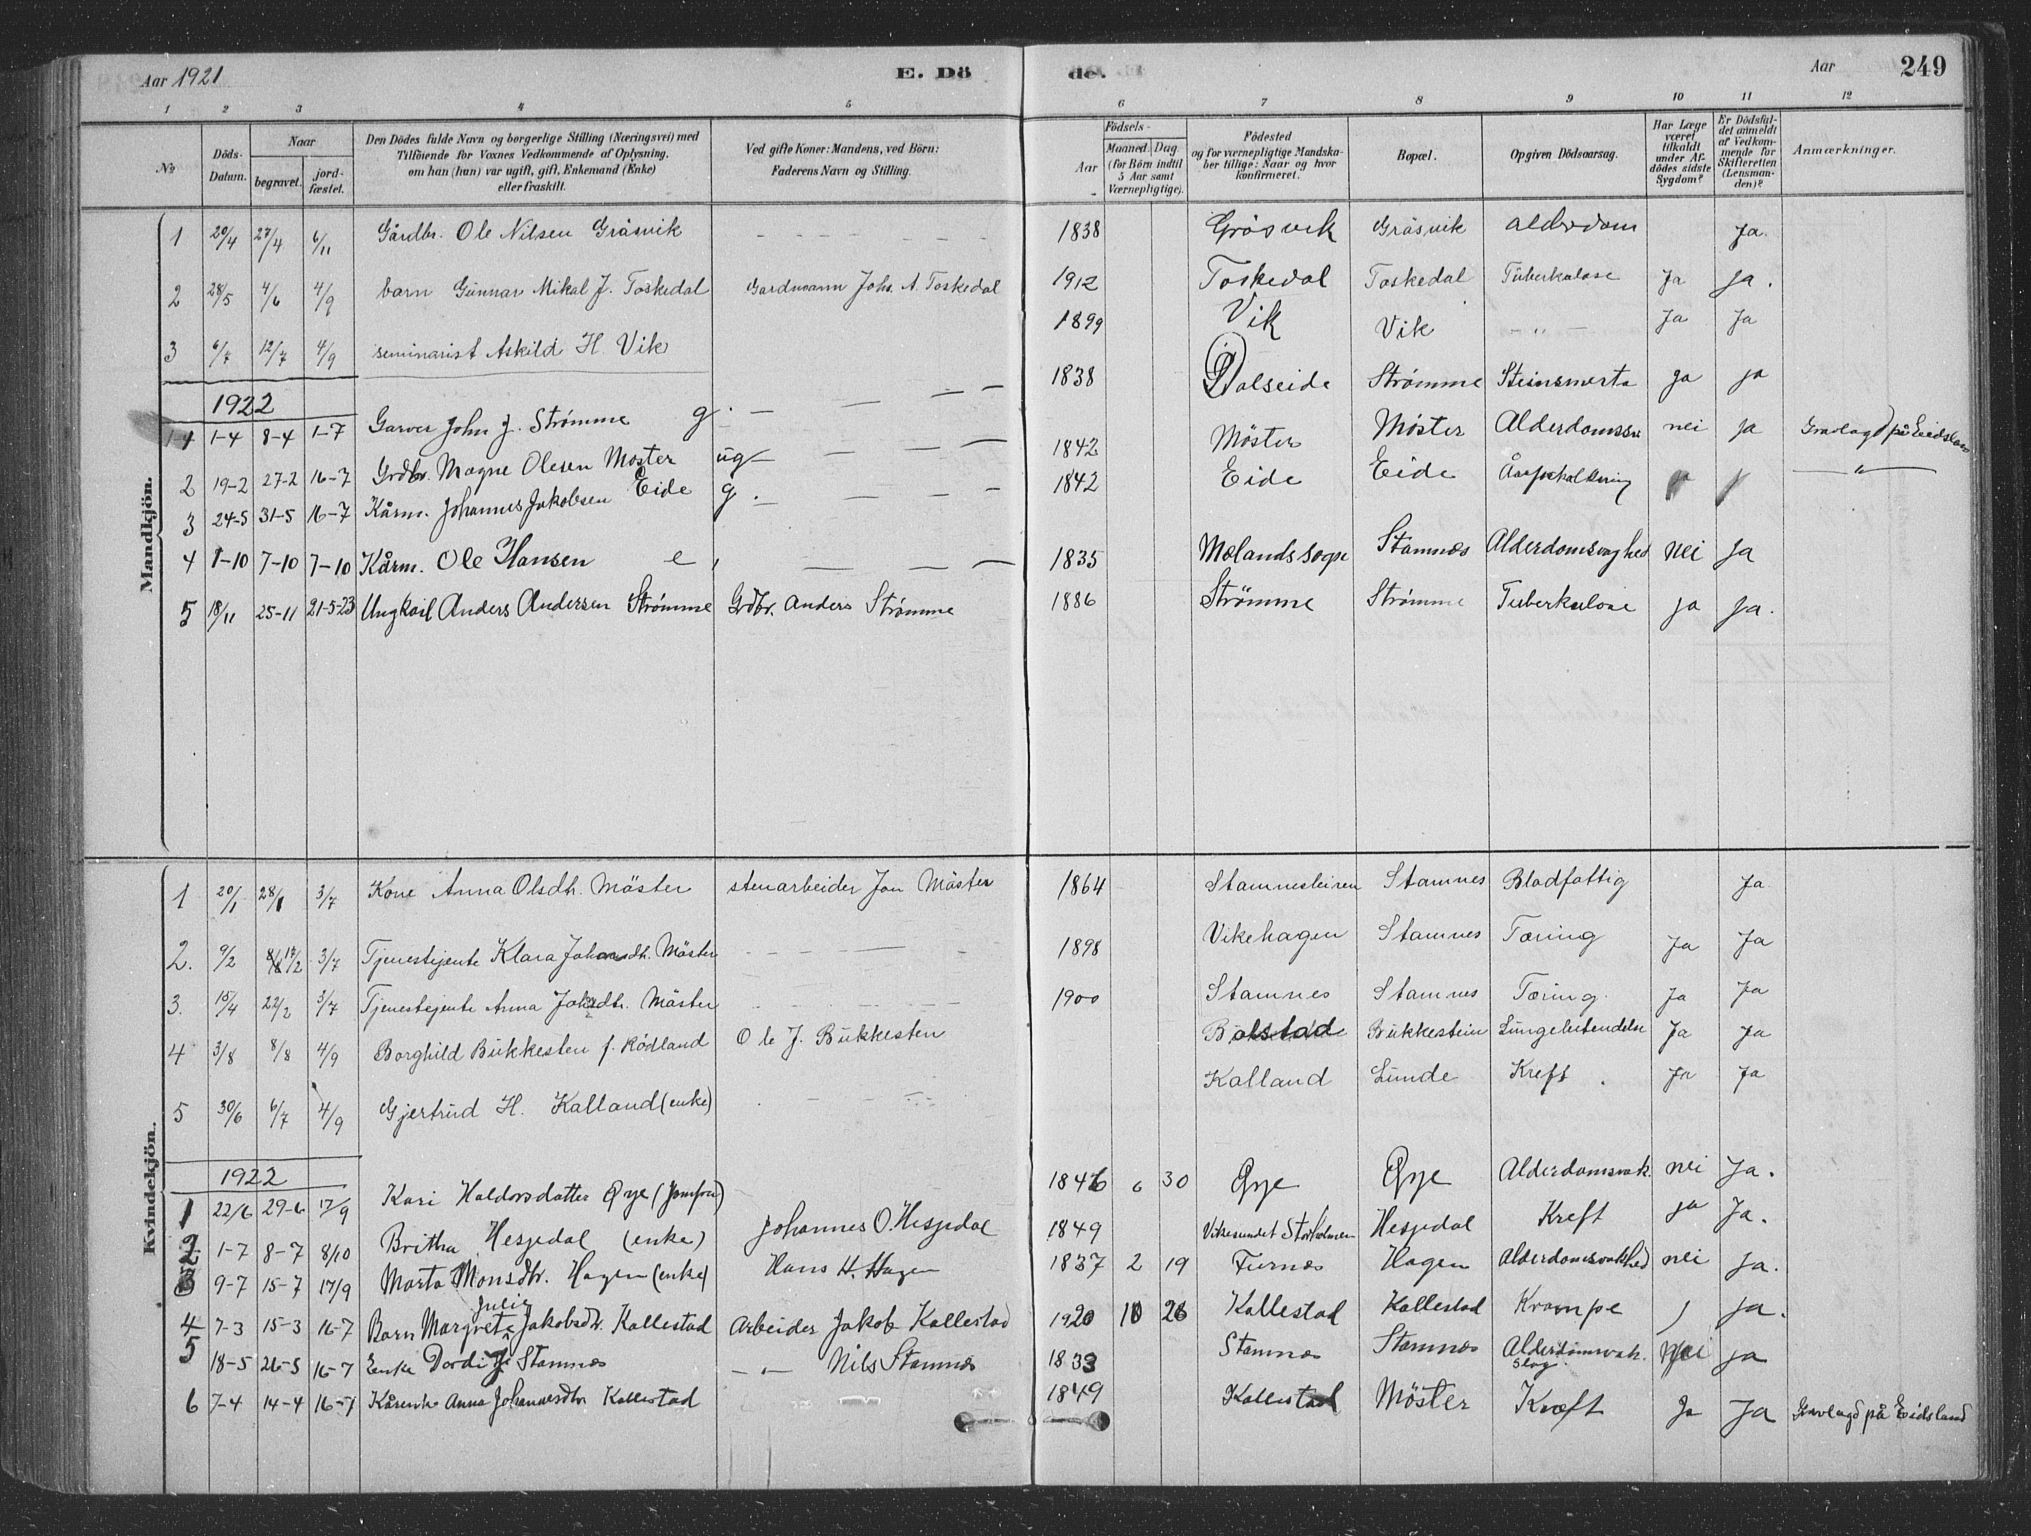 Aar 1921 E. Döde. Aar 249
1 2 3 4 5 6 7 8 9 10 11 12
No
Döds-Datum.
Naar begravet. jordfæstet.
Den Dödes fulde Navn og borgerlige Stilling (Næringsvei) med
Tilföiende for Voxnes Vedkommende af Oplysning,
om han (hun) var ugift, gift, Enkemand (Enke)
eller fraskilt.
Ved gifte Koner: Mandens, ved Börn:
Faderens Navn og Stilling.
Födsels-
Aar Maaned. Dag
(for Börn indtil 5 Aar samt Værnepligtige).
Födested
og for værnepligtige Mandskaber tillige: Naar og hvor konfirmeret.
Bopæl.
Opgiven Dödsaarsag.
Har Læge været tilkaldt under Afdödes sidste Sygdom?
Er Dödsfaldet anmeldt af Vedkommende for Skifteretten (Lensmanden)?
Anmærkninger.
Mandkjön.
1 20/4 27/4 6/11 Gårdbr. Ole Nilsen Gråsvik 1838 Gråsvik Gråsvik Alderdom Ja.
2 28/5 4/6 4/9 barn Gunnar Mikal J. Toskedal Gardmann Johs. A. Toskedal 1912 Toskedal Toskedal Tuberkulose Ja Ja.
3 6/7 12/7 4/9 seminarist Askild H. Vik 1899 Vik Vik - " - Ja Ja
1922
1 1-4 8-4 1-7 Garver John J. Strømme g. 1838 Dalseide Strømme Steinsmerta ja ja
2 19-2 27-2 16-7 Grdbr. Magne Olesen Møster ug 1842 Möster Møster nei ja Gravlagd på Eidsland
3 24-5 31-5 16-7 Kårm. Johannes Jakobsen Eide g. 1842 Eide Eide - " -
4 1-10 7-10 7-10 Kårm. Ole Hansen e 1835 Mælands sogn Stamnæs Alderdomsvaghed nei Ja
5 18/11 25-11 21-5-23 Ungkarl Anders Andersen Strømme Grdbr. Anders Strømme 1886 Strømme Strømme Tuberkulose ja Ja.
Kvindekjön.
1 20/1 28/1 3/7 Kone Anna Olsdtr. Möster stenarbeider Jon Möster 1864 Stamnesleiren Stamnes Blodfattig Ja
2. 9/2 17/2 3/7 Tjenestejente Klara Johansdtr. Möster 1898 Vikehagen Stamnes Tæring Ja Ja
3. 15/4 22/2 3/7 Tjenestejente Anna Möster 1900 Stamnes Stamnes Tæring. Ja Ja
4 3/8 8/8 4/9 Borghild Bukkesten f. Rödland Ole J. Bukkesten Bolstad Bukkestein Lungebetendelse Ja Ja
5 30/6 6/7 4/9 Gjertrud H. Kalland (enke) Kalland Lunde Kreft. Ja Ja
1922
1 22/6 29-6 17/9 Kari Haldorsdatter Øye (Jomfru) 1846 6 30 Øye Øye Alderdomsvak nei Ja.
2 1-7 8-7 8/10 Britha Hesjedal (enke) Johannes O Hesjedal 1849 Vikesundet Storholmen Hesjedal Kreft ja Ja.
3 9-7 15-7 17/9 Marta Monsdtr. Hagen (enke) Hans H. Hagen 1837 2 19 Furnes Hagen Alderdomsvakhed nei Ja.
4 7-3 15-3 16-7 Barn Margreta Julie Jakobsdtr. Kallestad Arbeider Jakob Kallestad 1920 10 26 Kallestad Kallestad Krampe Ja.
5 18-5 26-5 16-7 Enke Dordi J. Stamnes - " - Nils Stamnes 1833 Stamnes Stamnæs Alderdomsvak. Slag. Nei Ja
6 7-4 14-4 16-7 Anna Johannesdtr Kallestad 1849 Kallestad Möster Kræft Ja Ja Gravlagd på Eidsland